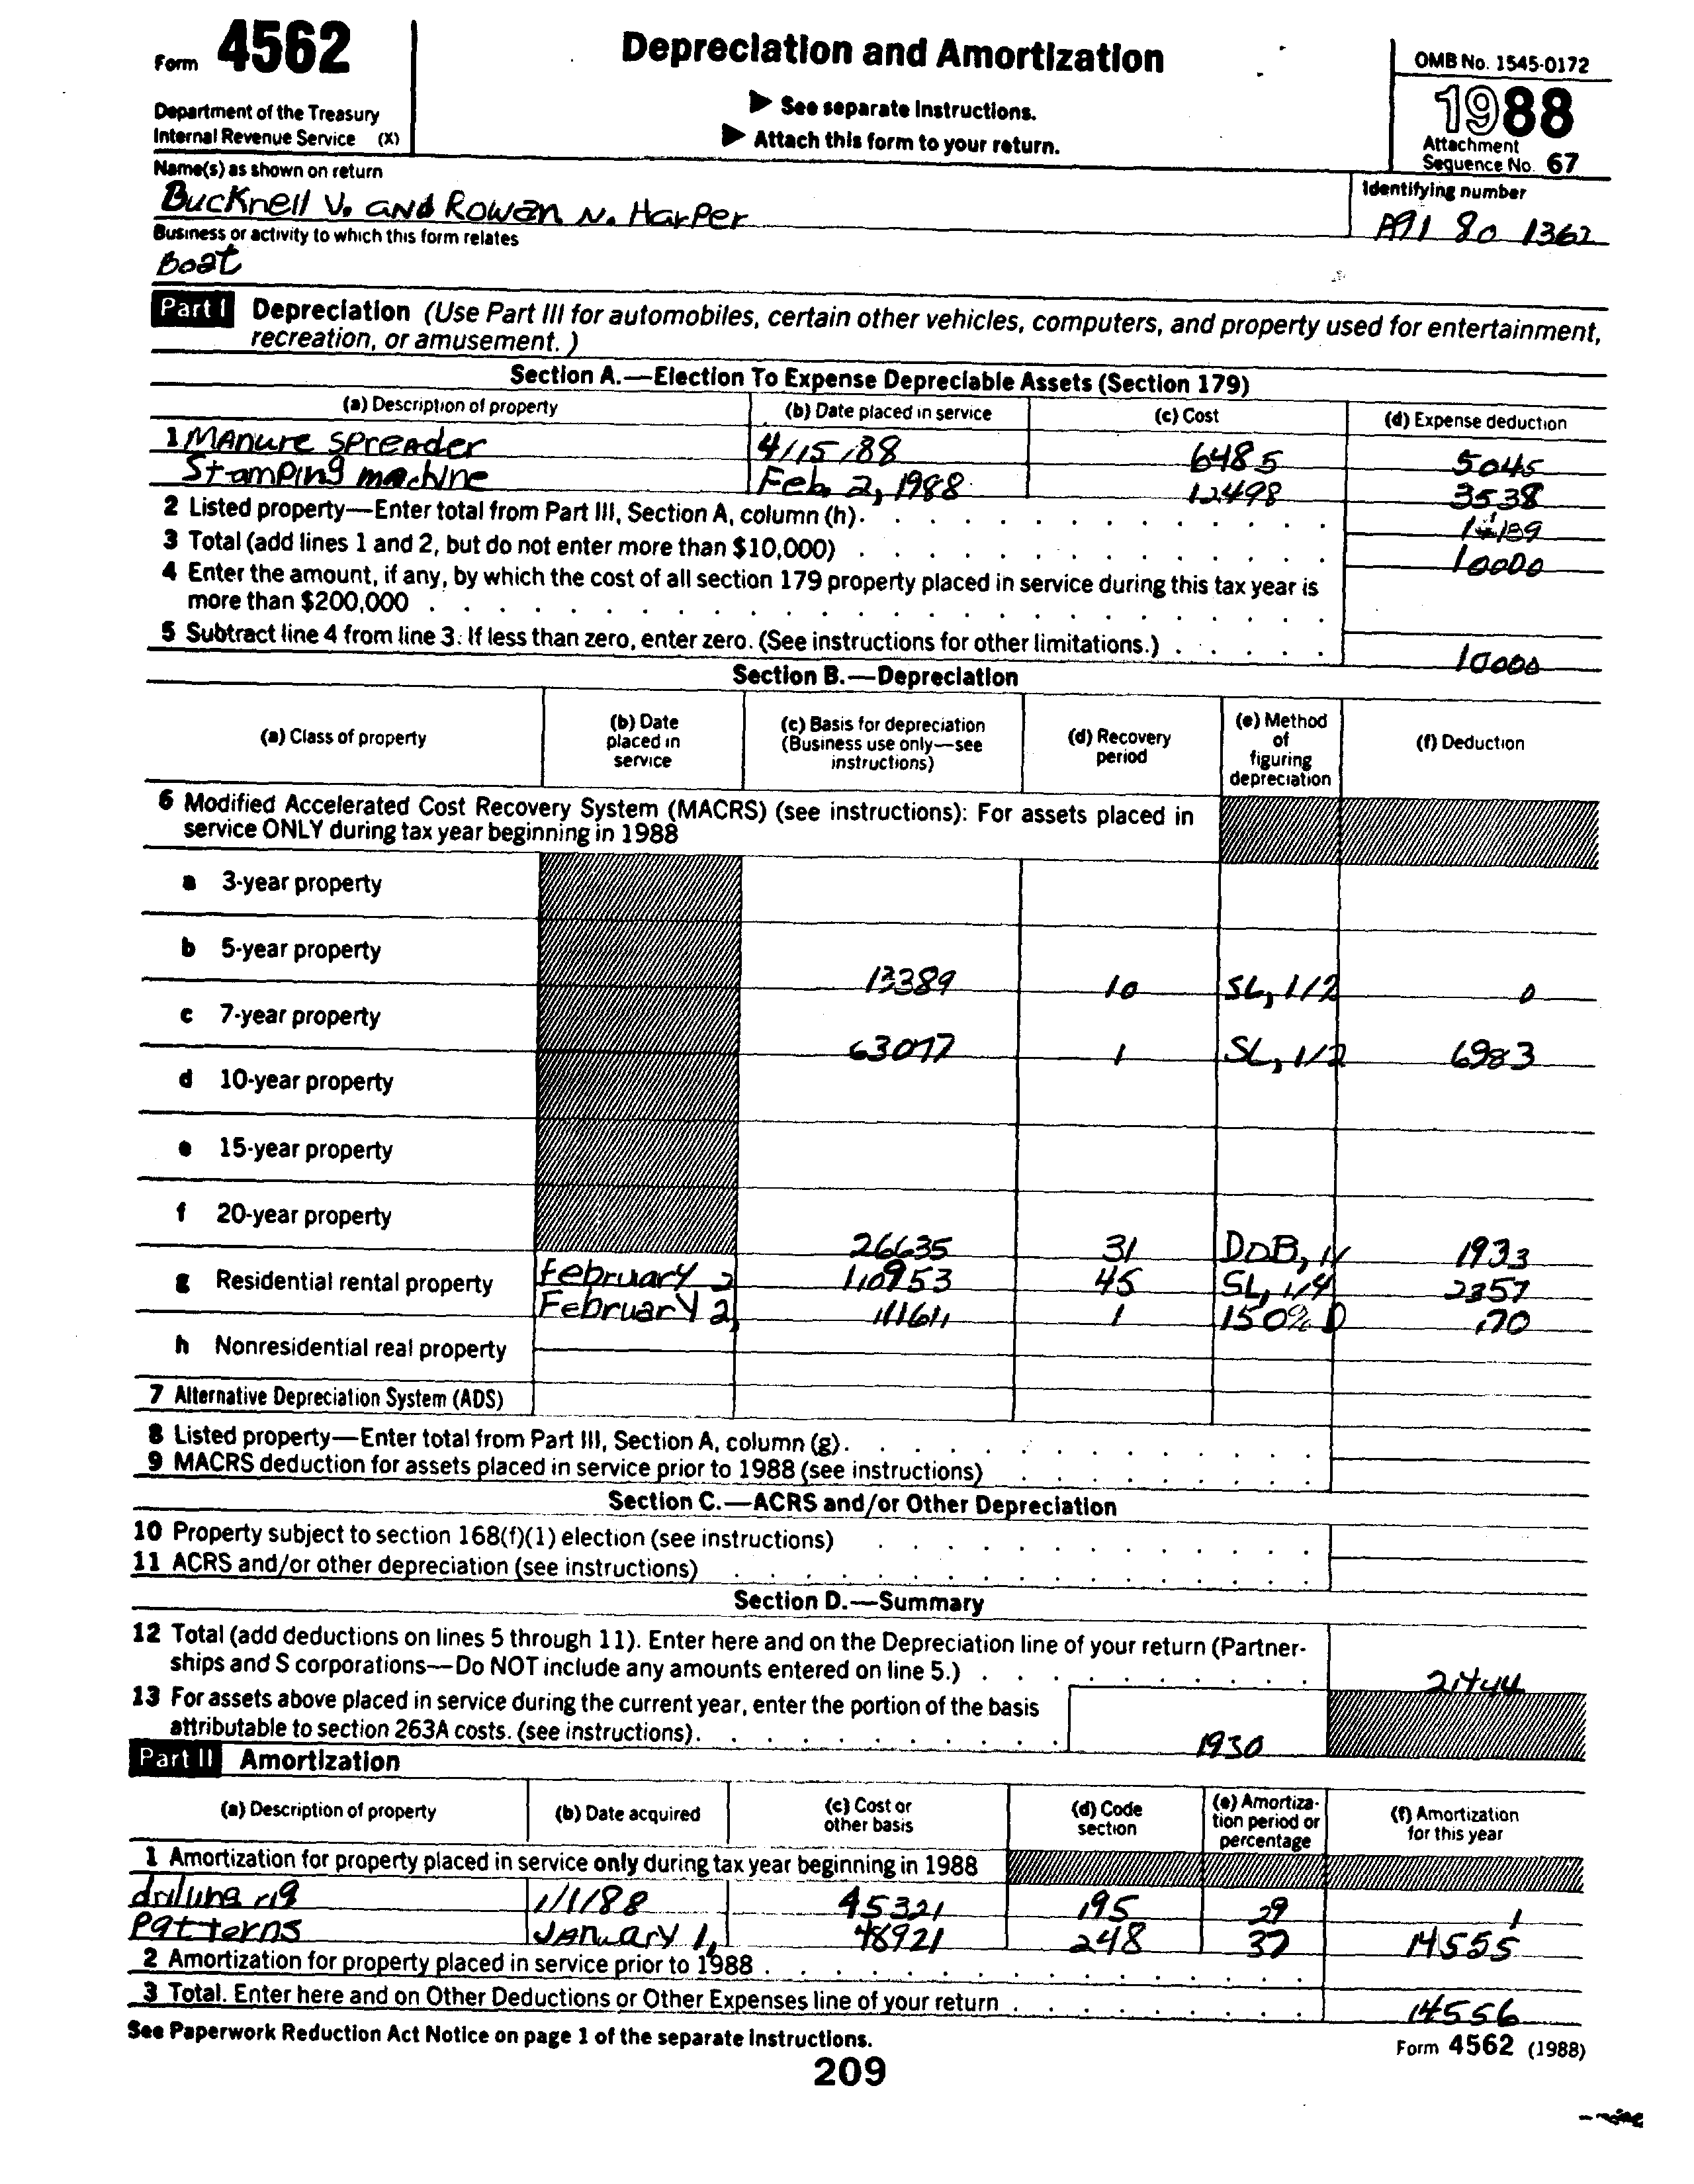 Form 4562
Department of the Treasury
Internal Revenue Service (X)
Depreciation and Amortization
▶ See separate instructions.
▶ Attach this form to your return.
OMB No. 1545-0172
1988
Attachment
Sequence No. 67
Name(s) as shown on return
Bucknell V. and Rowan N. Harper
Identifying number
A91 80 1362
Business or activity to which this form relates
Boat
Part I Depreciation (Use Part III for automobiles, certain other vehicles, computers, and property used for entertainment,
recreation, or amusement.)
Section A.—Election To Expense Depreciable Assets (Section 179)
(a) Description of property (b) Date placed in service (c) Cost (d) Expense deduction
1 Manure spreader 4/15/88 6485 5045
Stamping machine Feb. 2, 1988 12498 3538
2 Listed property—Enter total from Part III, Section A, column (h).
3 Total (add lines 1 and 2, but do not enter more than $10,000) 10000
4 Enter the amount, if any, by which the cost of all section 179 property placed in service during this tax year is
more than $200,000
5 Subtract line 4 from line 3. If less than zero, enter zero. (See instructions for other limitations.) 10000
Section B.—Depreciation
(a) Class of property (b) Date placed in service (c) Basis for depreciation (Business use only—see instructions) (d) Recovery period (e) Method of figuring depreciation (f) Deduction
6 Modified Accelerated Cost Recovery System (MACRS) (see instructions): For assets placed in
service ONLY during tax year beginning in 1988
a 3-year property
b 5-year property 13389 10 SL, 1/2 0
c 7-year property 63077 1 SL, 1/2 6983
d 10-year property
e 15-year property
f 20-year property 26635 31 DDB, 1933
g Residential rental property February 2 110953 45 SL, 1/4 2357
February 2, 111611 1 150% D 170
h Nonresidential real property
7 Alternative Depreciation System (ADS)
8 Listed property—Enter total from Part III, Section A, column (g).
9 MACRS deduction for assets placed in service prior to 1988 (see instructions)
Section C.—ACRS and/or Other Depreciation
10 Property subject to section 168(f)(1) election (see instructions)
11 ACRS and/or other depreciation (see instructions)
Section D.—Summary
12 Total (add deductions on lines 5 through 11). Enter here and on the Depreciation line of your return (Partner-
ships and S corporations—Do NOT include any amounts entered on line 5.) 21444
13 For assets above placed in service during the current year, enter the portion of the basis
attributable to section 263A costs. (see instructions). 1930
Part II Amortization
(a) Description of property (b) Date acquired (c) Cost or other basis (d) Code section (e) Amortization period or percentage (f) Amortization for this year
1 Amortization for property placed in service only during tax year beginning in 1988
drilling rig 1/1/88 45321 195 29 1
Patterns January 1, 48921 248 37 14555
2 Amortization for property placed in service prior to 1988
3 Total. Enter here and on Other Deductions or Other Expenses line of your return 14556
See Paperwork Reduction Act Notice on page 1 of the separate instructions.
Form 4562 (1988)
209